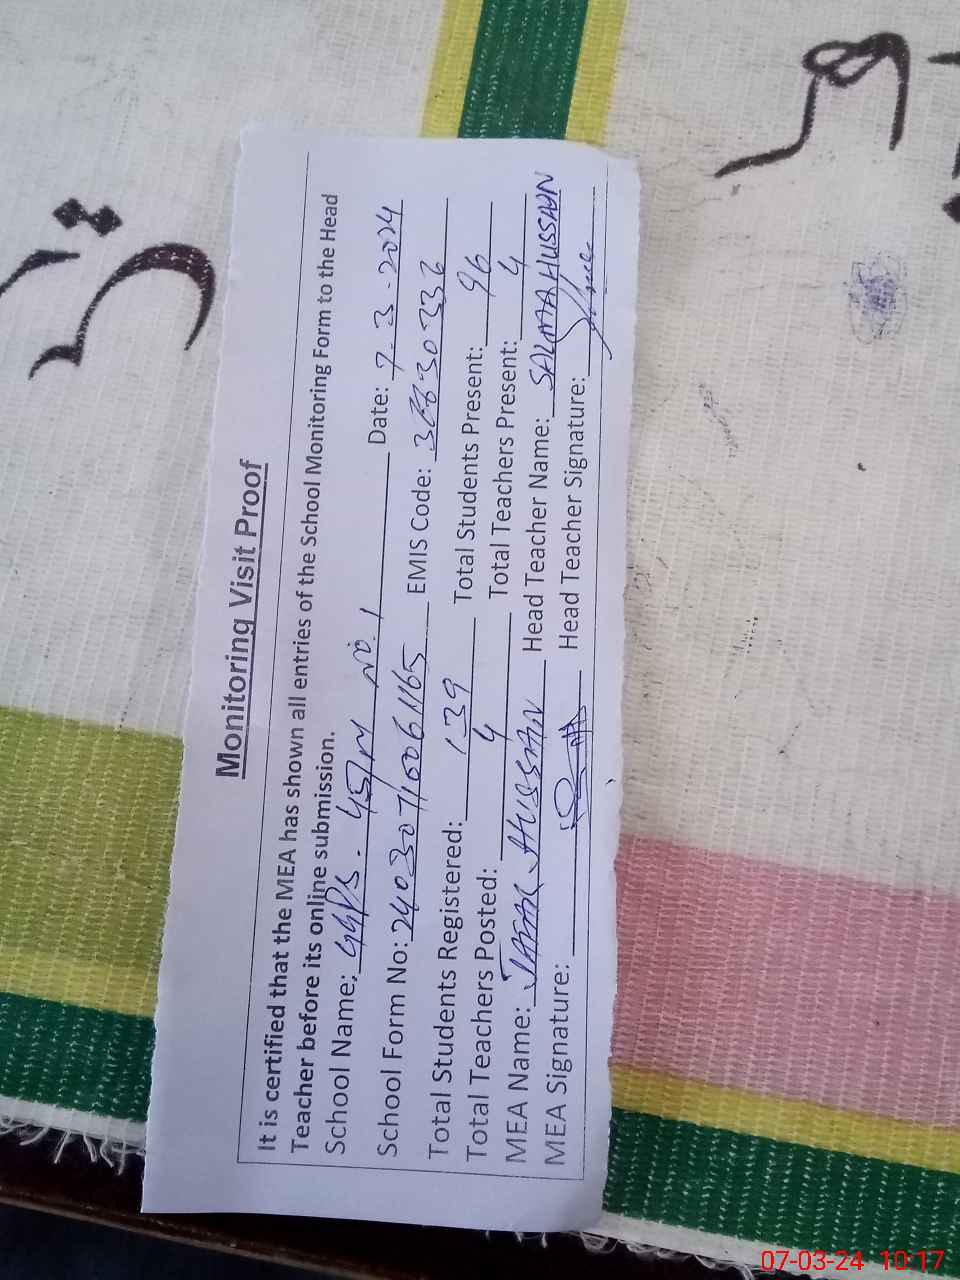 Monitoring Visit Proof
It is certified that the MEA has shown all entries of the School Monitoring Form to the Head
Teacher before its online submission.
School Name: GGPS. 45/M NO. 1 Date: 7-3-2024
School Form No: 24030710061165 EMIS Code: 36630336
Total Students Registered: 139 Total Students Present: 96
Total Teachers Posted: 4 Total Teachers Present: 4
MEA Name: JAFAR HUSSAIN Head Teacher Name: SALMA HUSSAIN
MEA Signature: Head Teacher Signature:
07-03-24 10:17